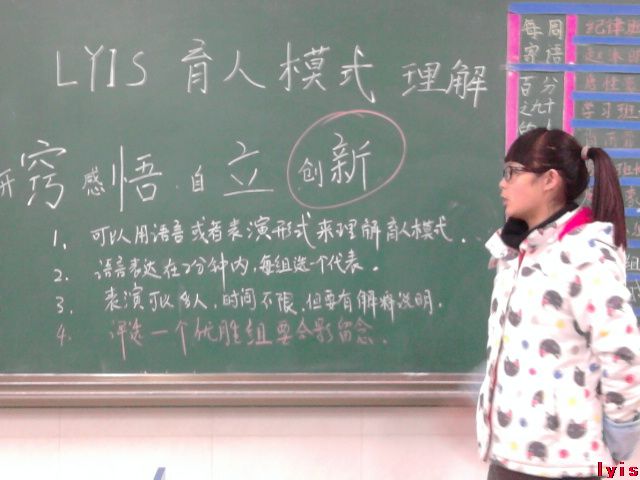 LYIS 育人模式 理解
开窍 感悟 自立 创新
1. 可以用语言或者表演形式来理解育人模式.
2. 语言表达在2分钟内,每组选一个代表.
3. 表演可以多人,时间不限,但要有解释说明.
4. 评选一个优胜组要合影留念.
每周
寄语
百分
之九十
纪律
学习班
lyis